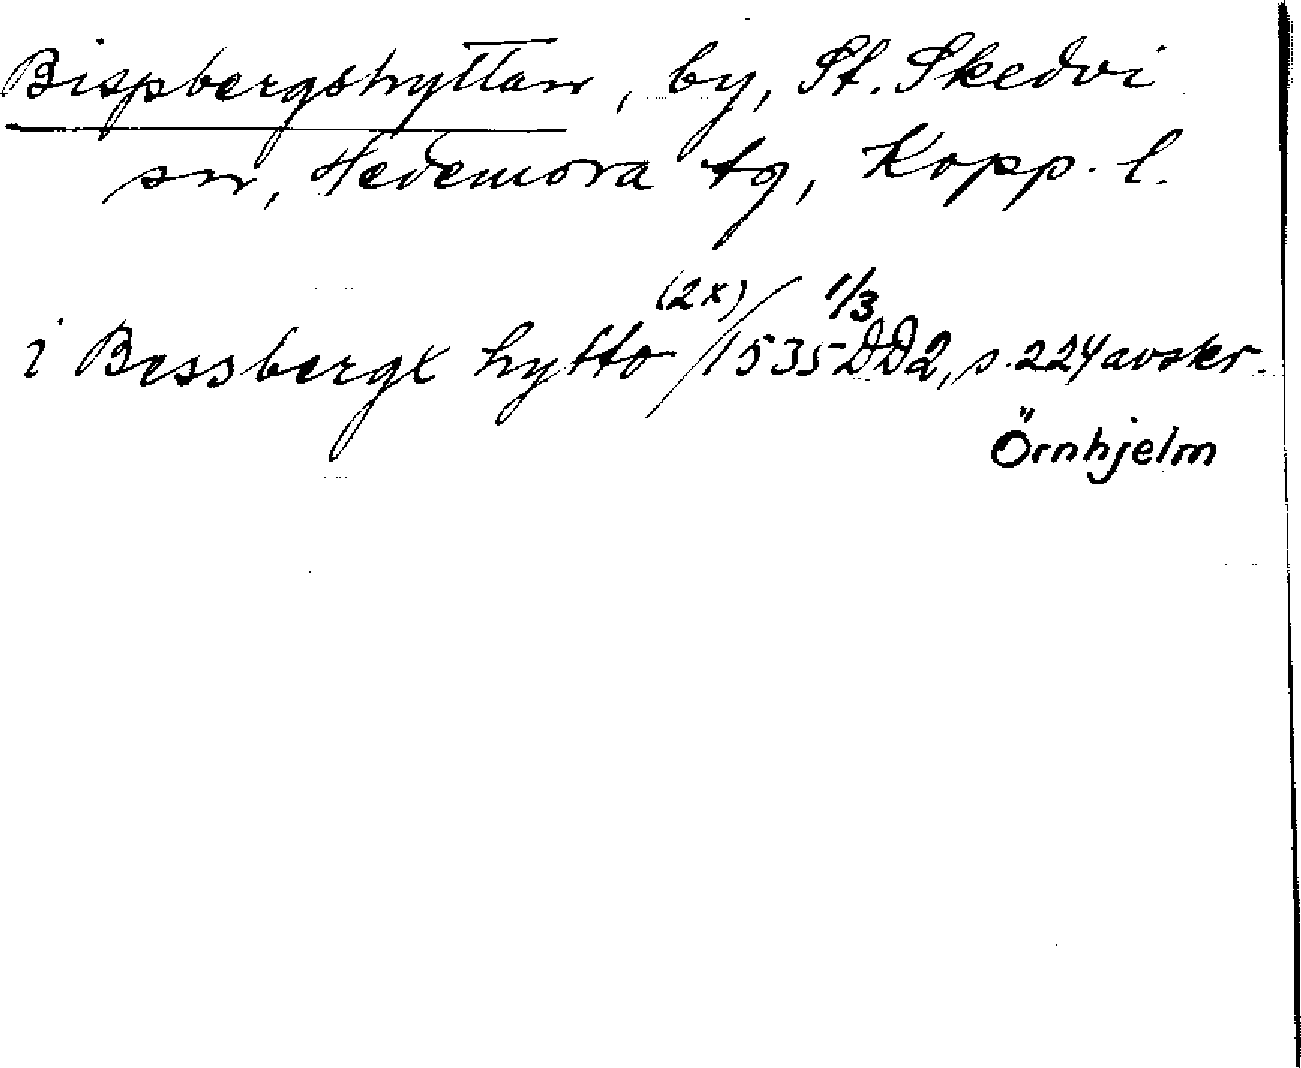 Bispbergshyttan, by, St. Skedvi
sn, Hedemora tg, Kopp. l.
i Bessbergx hytto (2x) / 1535 1/3 DD2, s. 224 avskr.
Örnhjelm